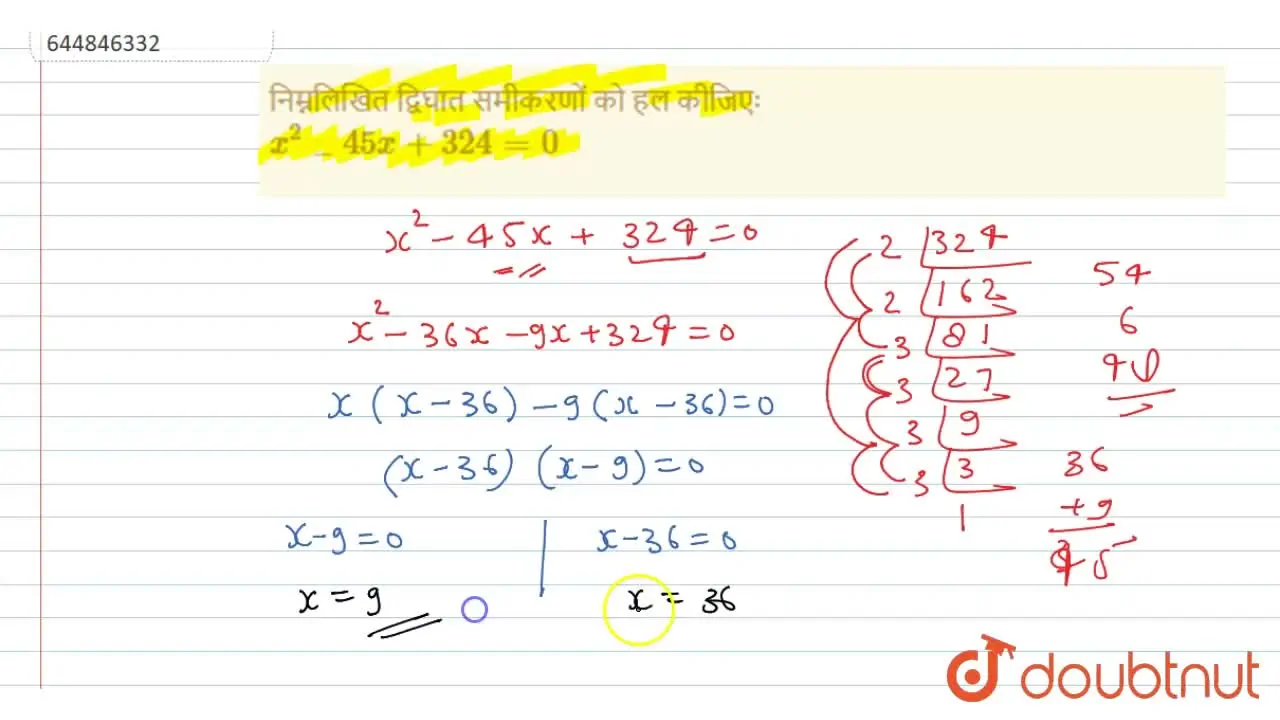 644846332
निम्नलिखित द्विघात समीकरणों को हल कीजिएः
x² - 45x + 324 = 0
x² - 45x + 324 = 0
x² - 36x - 9x + 324 = 0
x (x - 36) - 9 (x - 36) = 0
(x - 36) (x - 9) = 0
x - 9 = 0 | x - 36 = 0
x = 9
x = 36
2 | 324
2 | 162
3 | 81
3 | 27
3 | 9
3 | 3
1
54
6
36
+ 9
45
doubtnut